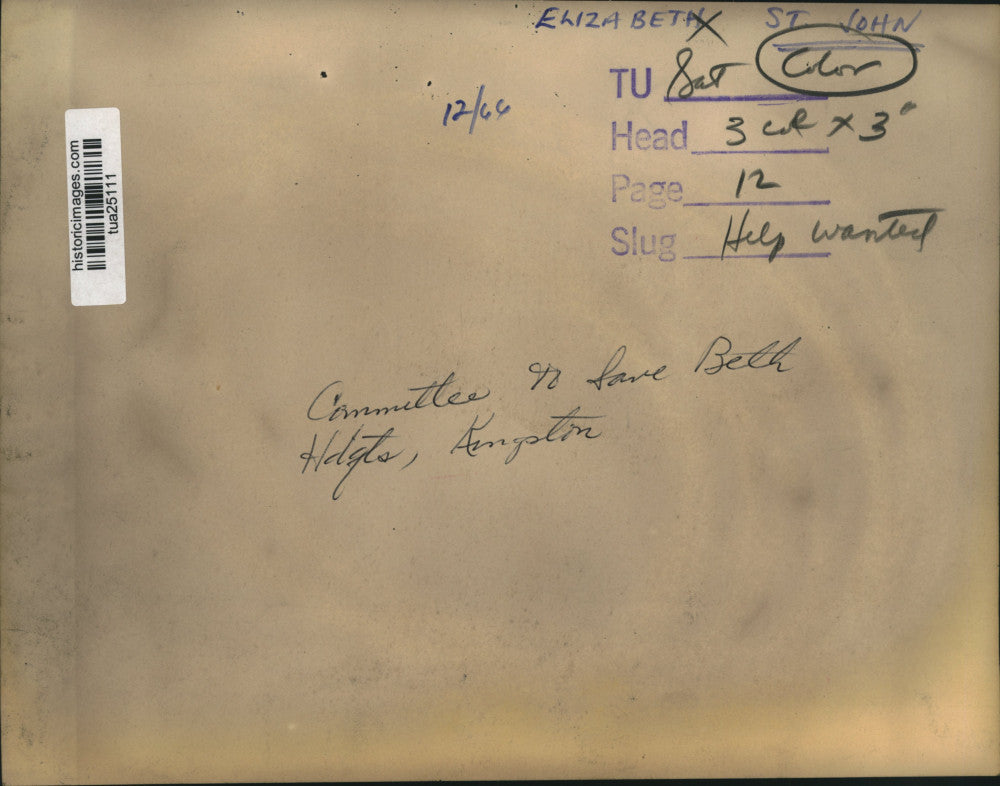 ELIZABETH ST JOHN
TU Sat Color
12/64
Head 3 col x 3"
Page 12
Slug Help Wanted
historicimages.com
tua25111
Committee to Save Beth
Hdqts, Kingston